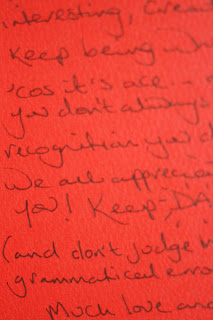 interesting, Creat
Keep being wh
'cos it's ace –
you don't always
recognition you d
We all apprecia
you! Keep, DA
(and don't judge
grammatical erro
Much love and